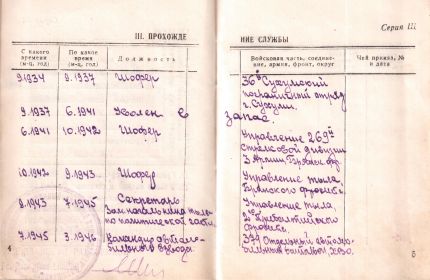 Серия Ш
III. ПРОХОЖДЕ
НИЕ СЛУЖБЫ
С какого времени (м-ц, год)
По какое время (м-ц, год)
Должность
Войсковая часть, соединение, армия, фронт, округ
Чей приказ, № и дата
9.1934 9.1937 Шофер
36й Сухумский
пограничный отряд
г. Сухуми.
9.1937 6.1941 Уволен в
запас.
6.1941 10.1942 Шофер
Управление 269й
стрелковой дивизии
3 Армии, Брянск. фр.
10.1942 9.1943 Шофер
Управление тыла
Брянского фронта.
9.1943 7.1945 Секретарь
Зам. начальника тыла
по политической части
Управление тыла
2го Прибалтийского
фронта.
7.1945 3.1946 Командир автомо-
бильного взвода
Отдельный автомо-
бильный
4
5